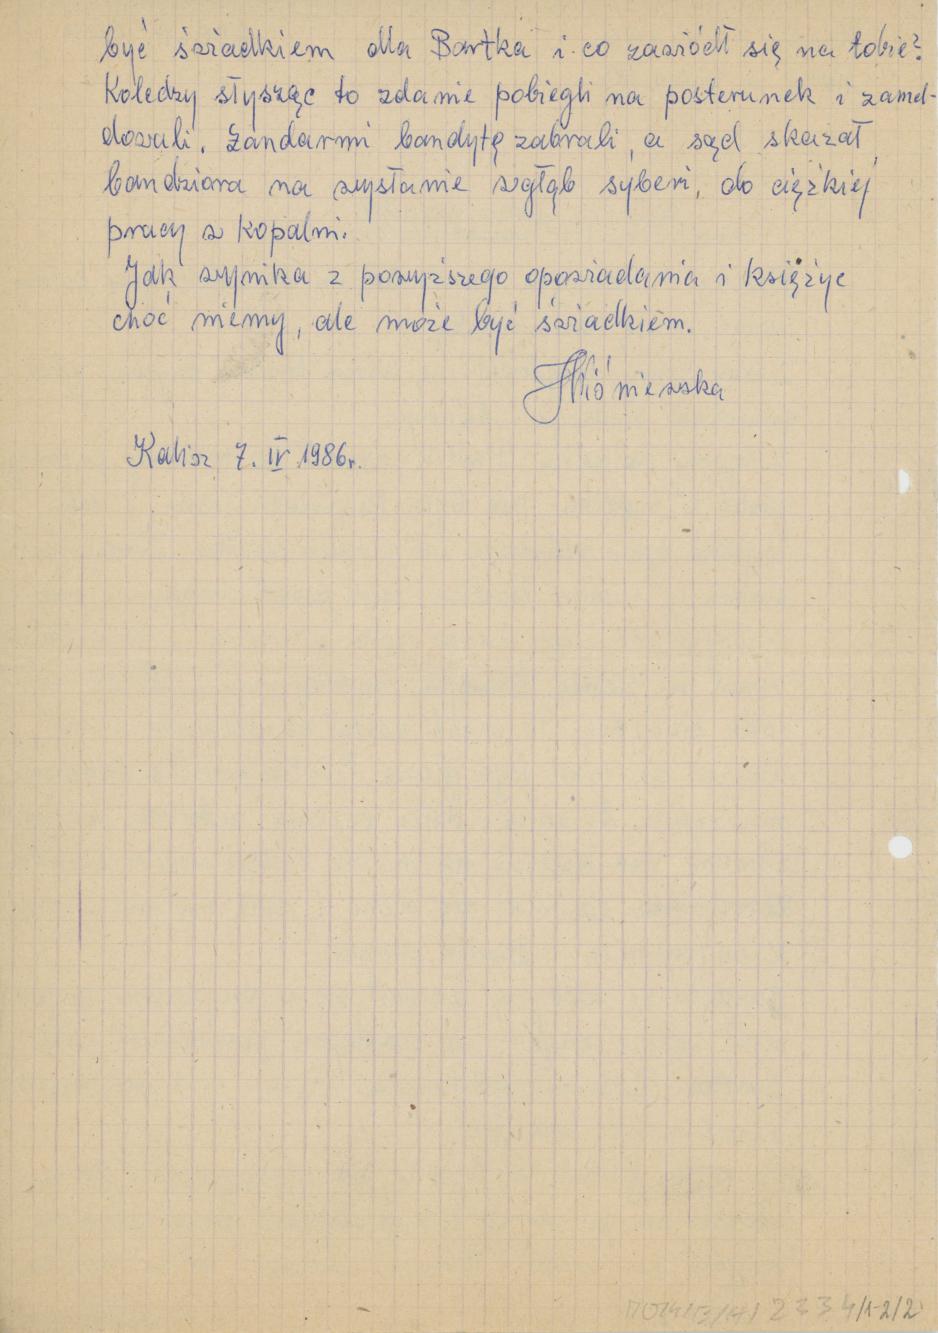 być świadkiem dla Bartka i co zawiódł się na tobie?
Koledzy słysząc to zdanie pobiegli na posterunek i zamel-
dowali. Żandarmi bandytę zabrali, a sąd skazał
bandziora na wysłanie wgłąb syberi, do ciężkiej
pracy w kopalni.
Jak wynika z powyższego opowiadania i księżyc
choć niemy, ale może być świadkiem.
Kalisz 7. IV 1986r.
2334/1-2/2